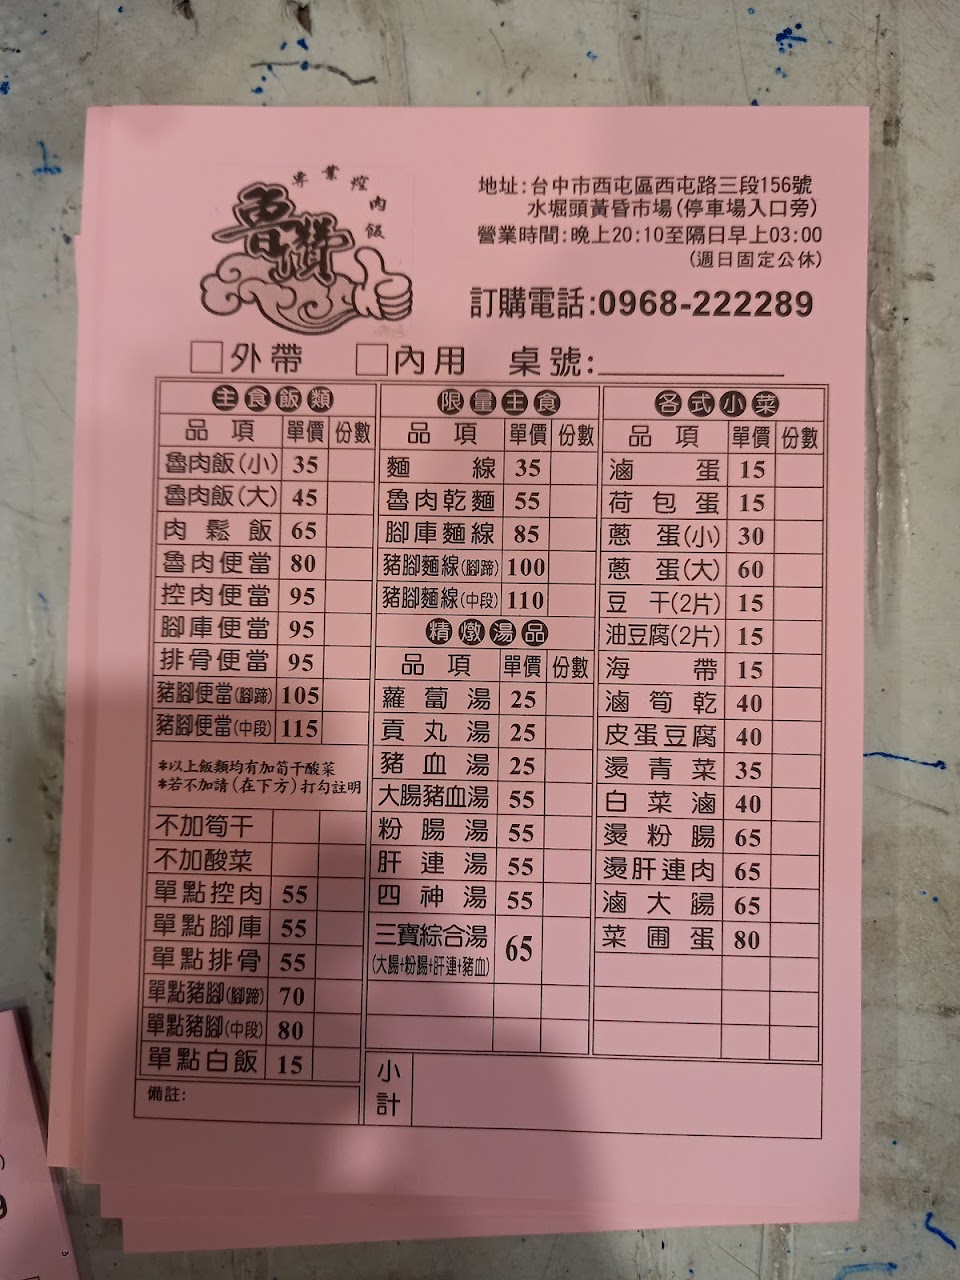 專業焢肉飯
魯讚
地址:台中市西屯區西屯路三段156號
水堀頭黃昏市場(停車場入口旁)
營業時間:晚上20:10至隔日早上03:00
(週日固定公休)
訂購電話:0968-222289
□外帶 □內用 桌號:
主食飯類
品項 單價 份數
魯肉飯(小) 35
魯肉飯(大) 45
肉鬆飯 65
魯肉便當 80
控肉便當 95
腳庫便當 95
排骨便當 95
豬腳便當(腳蹄) 105
豬腳便當(中段) 115
*以上飯類均有加筍干酸菜
*若不加請(在下方)打勾註明
不加筍干
不加酸菜
單點控肉 55
單點腳庫 55
單點排骨 55
單點豬腳(腳蹄) 70
單點豬腳(中段) 80
單點白飯 15
備註:
限量主食
品項 單價 份數
麵線 35
魯肉乾麵 55
腳庫麵線 85
豬腳麵線(腳蹄) 100
豬腳麵線(中段) 110
精燉湯品
品項 單價 份數
蘿蔔湯 25
貢丸湯 25
豬血湯 25
大腸豬血湯 55
粉腸湯 55
肝連湯 55
四神湯 55
三寶綜合湯 65
(大腸+粉腸+肝連+豬血)
各式小菜
品項 單價 份數
滷蛋 15
荷包蛋 15
蔥蛋(小) 30
蔥蛋(大) 60
豆干(2片) 15
油豆腐(2片) 15
海帶 15
滷筍乾 40
皮蛋豆腐 40
燙青菜 35
白菜滷 40
燙粉腸 65
燙肝連肉 65
滷大腸 65
菜圃蛋 80
小計